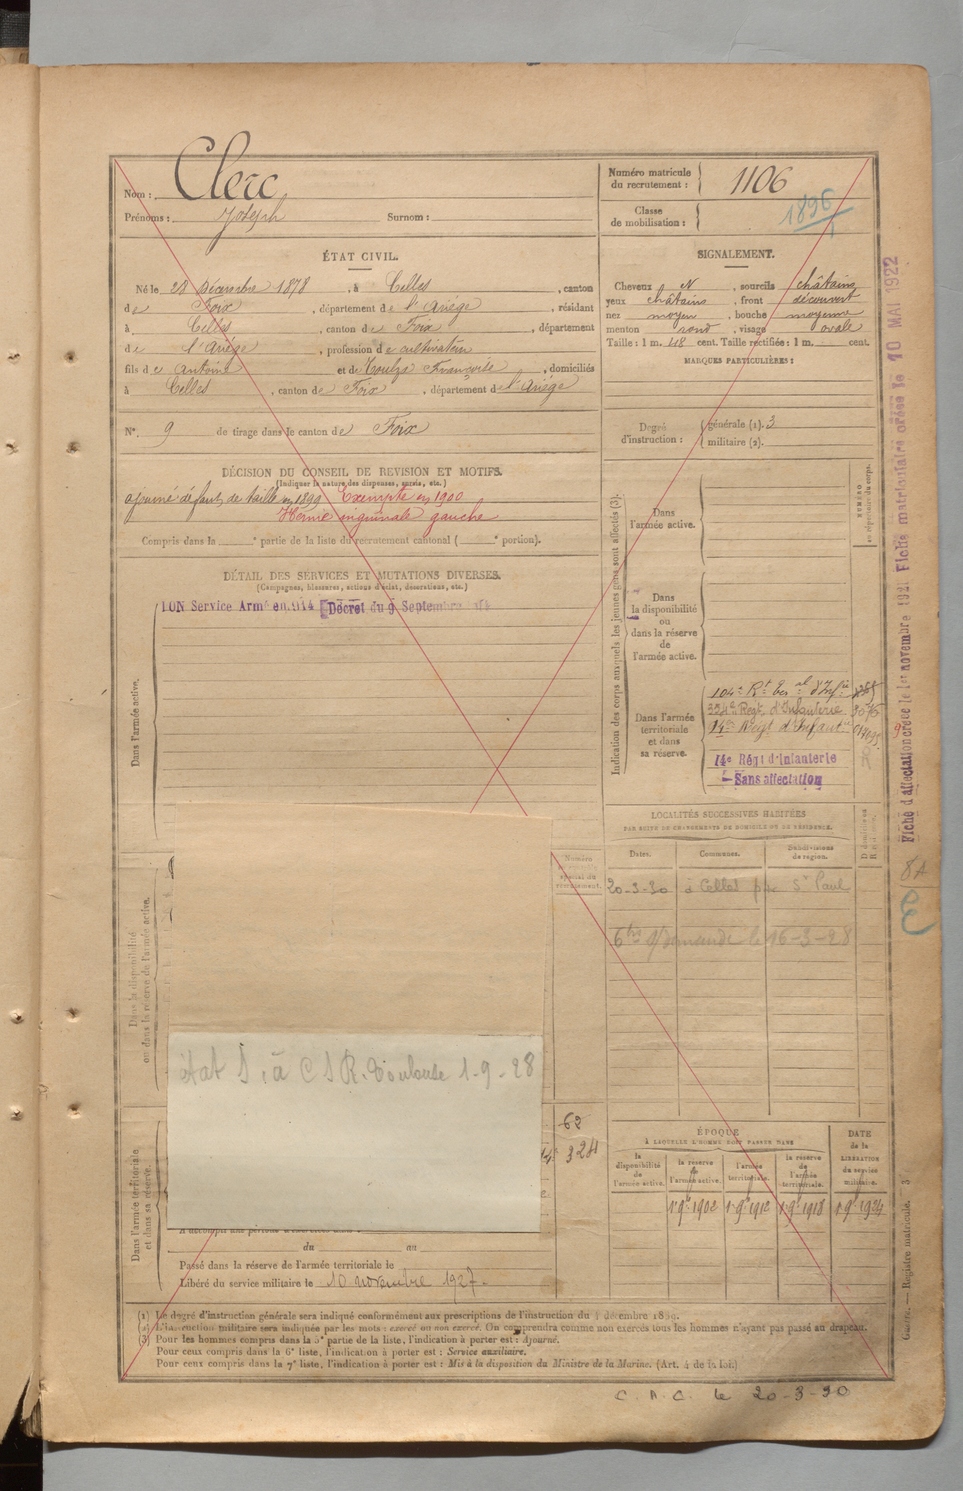 Nom : Clerc
Prénoms : Joseph Surnom :
Numéro matricule du recrutement : 1106
Classe de mobilisation : 1896
ÉTAT CIVIL.
Né le 28 Décembre 1878, à Celles, canton
de Foix, département de l'Ariège, résidant
à Celles, canton de Foix, département
de l'Ariège, profession de cultivateur
fils de Antoine et de Françoise, domiciliés
à Celles, canton de Foix, département de l'Ariège
N°. 9 de tirage dans le canton de Foix
SIGNALEMENT.
Cheveux N, sourcils châtains
yeux châtains, front découvert
nez moyen, bouche moyenne
menton rond, visage ovale
Taille : 1 m. 48 cent. Taille rectifiée : 1 m. cent.
MARQUES PARTICULIÈRES :
Degré d'instruction : générale (1). 3
militaire (2).
DÉCISION DU CONSEIL DE REVISION ET MOTIFS.
(Indiquer la nature des dispenses, sursis, etc.)
ajourné défaut de taille en 1899 Exempté en 1900
Hernie inguinale gauche
Compris dans la e partie de la liste du recrutement cantonal ( e portion).
DÉTAIL DES SERVICES ET MUTATIONS DIVERSES.
(Campagnes, blessures, actions d'éclat, décorations, etc.)
BON Service Armé en 1914 Décret du 9 Septembre 1914
Dans l'armée active.
Dans la disponibilité ou dans la réserve de l'armée active.
Dans l'armée territoriale et dans sa réserve.
Indication des corps auxquels les jeunes gens sont affectés (3).
NUMÉRO au répertoire du corps.
Dans l'armée active.
Dans la disponibilité ou dans la réserve de l'armée active.
Dans l'armée territoriale et dans sa réserve.
104e Rt Ter al d'Infie
324e Regt d'Infanterie
14e Régt d'Infantie
14e Régt d'Infanterie
Sans affectation
LOCALITÉS SUCCESSIVES HABITÉES
PAR SUITE DE CHANGEMENTS DE DOMICILE OU DE RÉSIDENCE.
Dates. Communes. Subdivisions de région. D domicile ou R résidence.
20-3-30 à Celles par St Paul
demande le 16-3-28
Numéro spécial du recrutement.
état S. à C S R. Toulouse 1-9-28
62
324
A accompli une période d'exercices dans
du au
Passé dans la réserve de l'armée territoriale le
Libéré du service militaire le 10 novembre 1927.
ÉPOQUE
À LAQUELLE L'HOMME DOIT PASSER DANS
DATE de la LIBÉRATION du service militaire.
la disponibilité de l'armée active.
la réserve de l'armée active.
l'armée territoriale.
la réserve de l'armée territoriale.
1 9bre 1902 1 9bre 1912 1 9bre 1918 1 9bre 1924
(1) Le degré d'instruction générale sera indiqué conformément aux prescriptions de l'instruction du 4 décembre 1889.
(2) L'instruction militaire sera indiquée par les mots : exercé ou non exercé. On comprendra comme non exercés tous les hommes n'ayant pas passé au drapeau.
(3) Pour les hommes compris dans la 5e partie de la liste, l'indication à porter est : Ajourné.
Pour ceux compris dans la 6e liste, l'indication à porter est : Service auxiliaire.
Pour ceux compris dans la 7e liste, l'indication à porter est : Mis à la disposition du Ministre de la Marine. (Art. 4 de la loi.)
C. A. C. le 20-3-30
Fiche d'affectation créée le 1er novembre 1921 Fiche matriculaire créée le 10 MAI 1922
8A
Registre matricule.